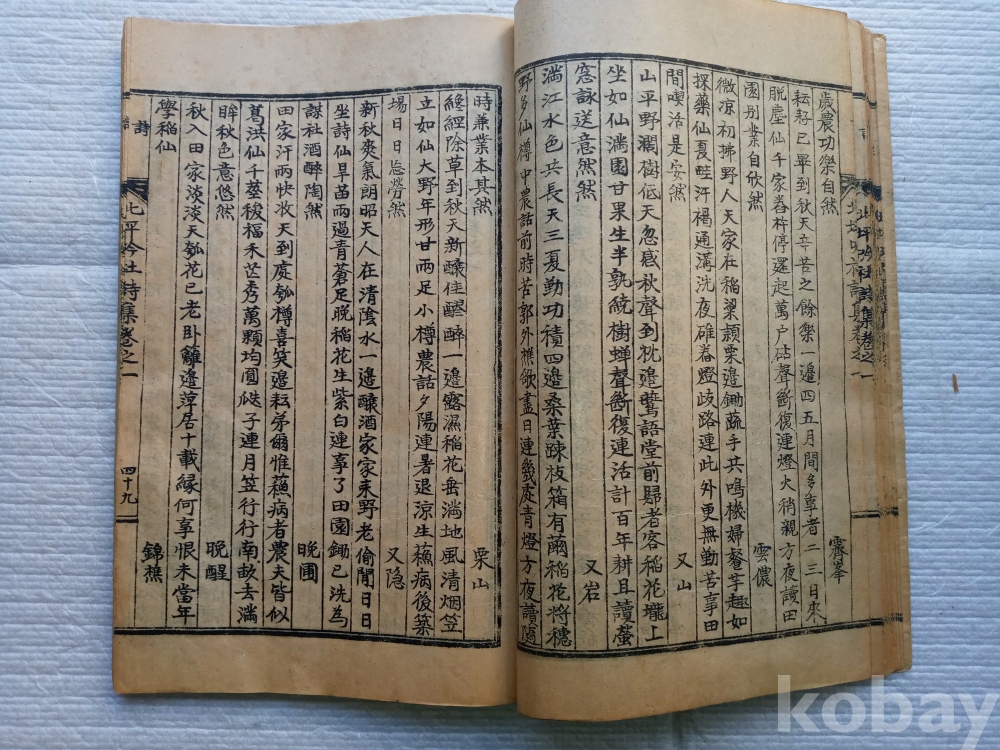 歲農功樂自然
霽峯
耘耔已畢到秋天辛苦之餘樂一邊四五月間多尊者二三日來
脫塵仙千家春杵停還起萬戶砧聲斷復連燈火稍親方夜讀田
園別業自欣然
雲儂
微凉初拂野人天家在稻粱穎栗邊鋤蔬手共鳴機婦奪芋趣如
採藥仙夏畦汗褐通溝洗夜碓春燈歧路連此外更無勤苦事田
間喫活是安然
又山
山平野濶樹低天忽感秋聲到枕邊鶯語堂前歸者客稻花壠上
坐如仙滿園甘果生半熟繞樹蟬聲斷復連活計百年耕且讀螢
窓詠送意然然
又岩
滿江水色共長天三夏勤功積四邊桑葉疎枝箱有繭稻花將穗
野多仙樽中農話前時苦郭外樵歌盡日連幾處青燈方夜讀隨
時兼業本其然
栗山
纔經除草到秋天新釀佳醪醉一邊露濕稻花香滿地風清烟笠
立如仙大野年形甘雨足小樽農話夕陽連暑退凉生蘓病後築
場日日忘勞然
又隐
新秋爽氣朗昭天人在清陰水一邊釀酒家家來野老偷閒日日
坐詩仙旱苗雨過青蒼足晚稻花生紫白連事了田園鋤已洗爲
謀社酒醉陶然
晚圃
田家汗雨快收天到處瓠樽喜笑邊耘弟爾惟蘓病者農夫皆似
葛洪仙千莖稄稫禾芒秀萬顆均圓餘子連月笠行行南畝去滿
眸秋色意悠然
晚醒
秋入田家淡淡天瓠花已老臥籬邊萍居十載緣何享恨未當年
學稻仙
錦樵
詩
北坪吟社詩集卷之一
四十九
北坪吟社詩集卷之一
kobay